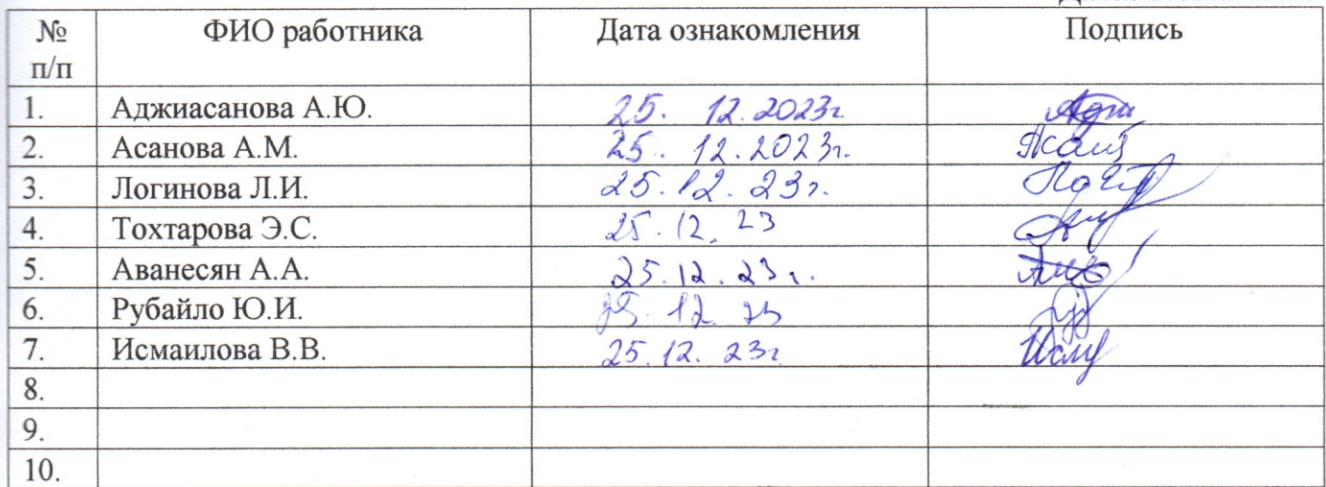 № ФИО работника Дата ознакомления Подпись
п/п
1. Аджиасанова А.Ю. 25. 12.2023г.
2. Асанова А.М. 25. 12.2023г.
3. Логинова Л.И. 25.12.23г.
4. Тохтарова Э.С. 25.12.23
5. Аванесян А.А. 25.12.23г.
6. Рубайло Ю.И. 25.12.23
7. Исмаилова В.В. 25.12.23г
8.
9.
10.